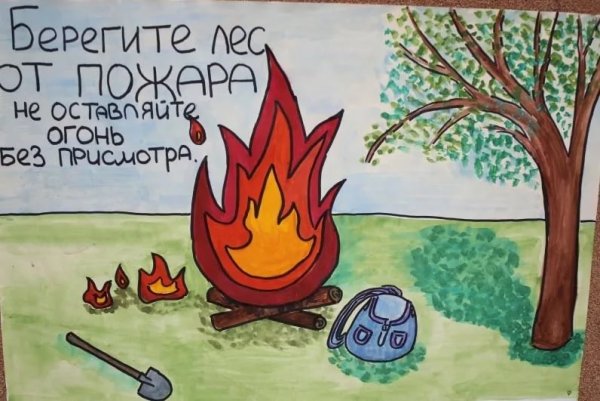 Берегите лес
от пожара
не оставляйте
огонь
без присмотра.